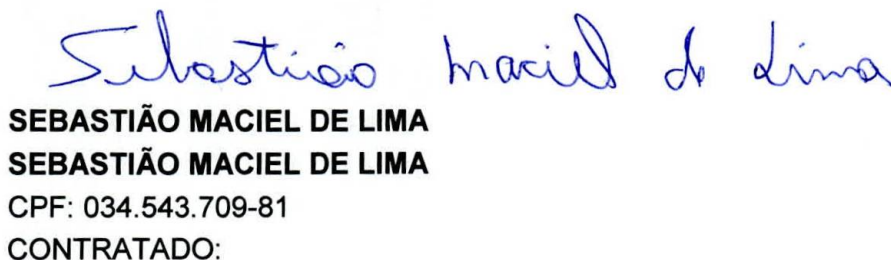 Sebastião Maciel de Lima
SEBASTIÃO MACIEL DE LIMA
SEBASTIÃO MACIEL DE LIMA
CPF: 034.543.709-81
CONTRATADO: